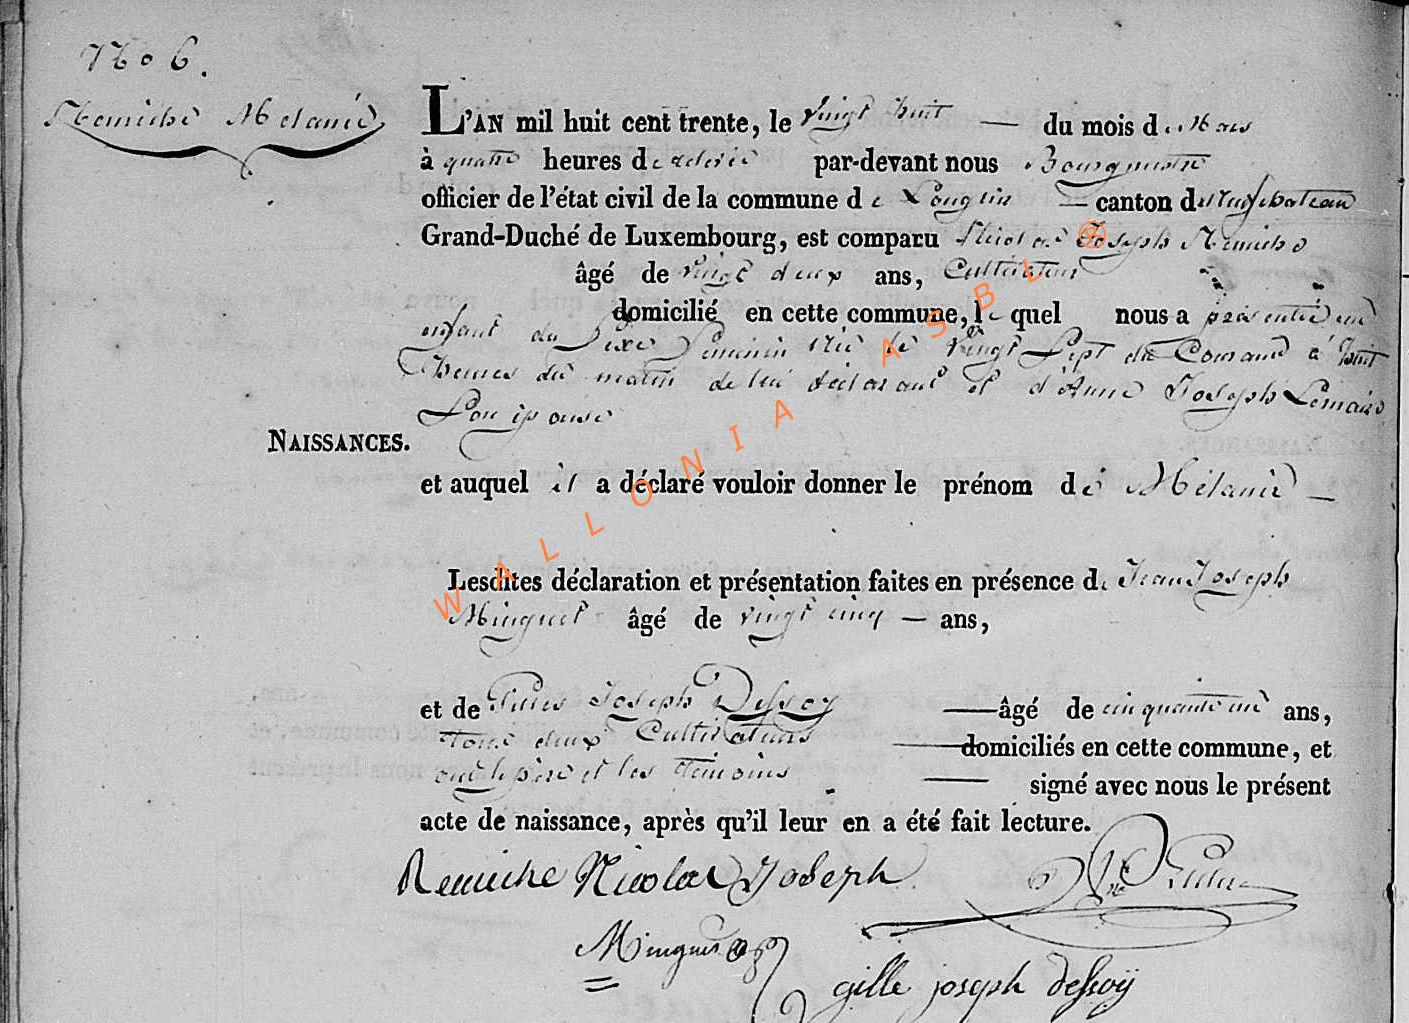 No 6.
Remiche Mélanie
L'AN mil huit cent trente, le vingt huit — du mois de Mars
à quatre heures de relevée par-devant nous Bourgmestre
officier de l'état civil de la commune de Longlier — canton de Neufchateau
Grand-Duché de Luxembourg, est comparu Nicolas Joseph Remiche
âgé de vingt deux ans, Cultivateur
domicilié en cette commune, lequel nous a présenté un
enfant du Sexe Feminin née le vingt Sept du Courant à huit
heures du matin de lui déclarant et d'Anne Joseph Lemaire
Son épouse
NAISSANCES.
et auquel il a déclaré vouloir donner le prénom de Mélanie —
Lesdites déclaration et présentation faites en présence de Jean Joseph
Minguet âgé de vingt cinq — ans,
et de Gilles Joseph Dessoy — âgé de cinquante un ans,
tous deux Cultivateurs — domiciliés en cette commune, et
ont le père et les témoins — signé avec nous le présent
acte de naissance, après qu'il leur en a été fait lecture.
Remiche Nicolas Joseph
Minguet
gille joseph dessoÿ
WALLONIA ASBL ®